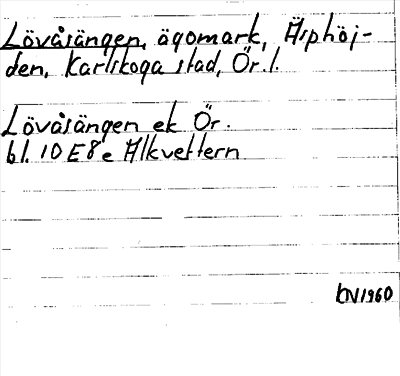 Lövåsängen, ägomark, Äsphöj-
den, Karlskoga stad, Ör. l.
Lövåsängen ek Ör.
bl. 10 E 8 e Alkvettern
KN1960